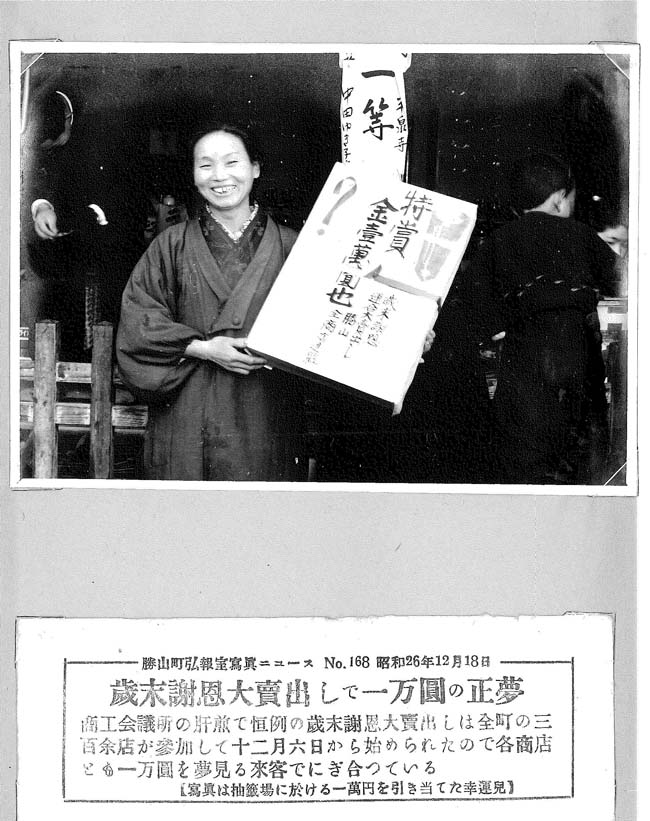 一等
平泉寺
特賞
金壹萬圓也
歳末謝恩
勝山
勝山町弘報室寫眞ニュース No.168 昭和26年12月18日
歳末謝恩大賣出しで一万圓の正夢
商工会議所の肝煎で恒例の歳末謝恩大賣出しは全町の三
百余店が参加して十二月六日から始められたので各商店
とも一万圓を夢見る來客でにぎ合つている
【寫眞は抽籤場に於ける一萬円を引き当てた幸運兒】